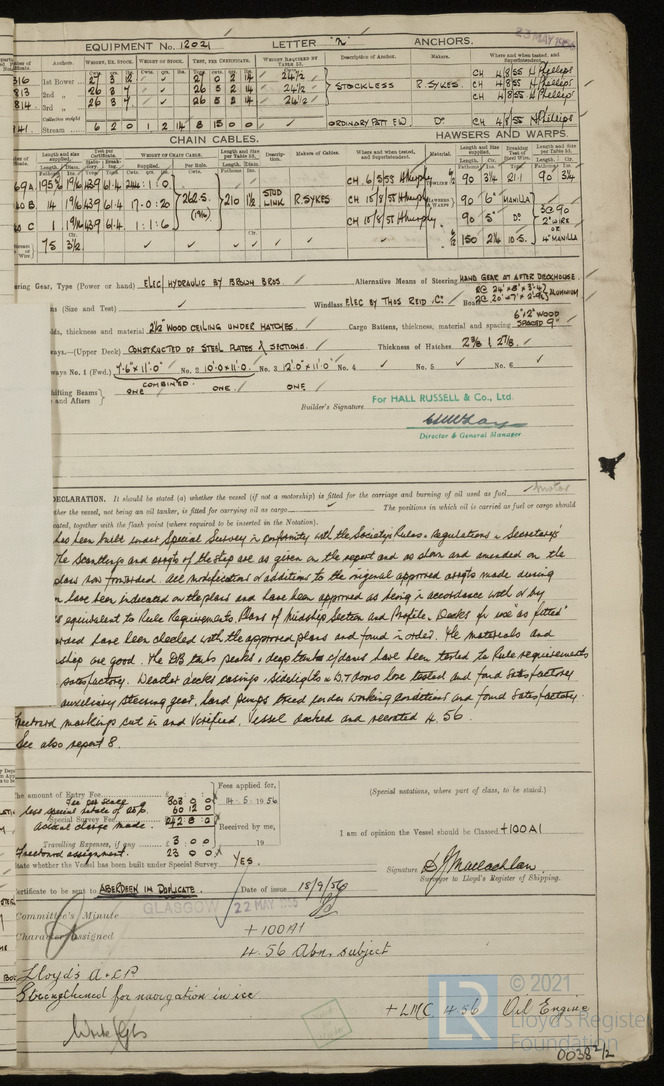 23 MAY 1956
EQUIPMENT No. 12021 LETTER "X" ANCHORS.
Anchors. WEIGHT, EX. STOCK. WEIGHT OF STOCK. TEST, PER CERTIFICATE. WEIGHT REQUIRED BY TABLE 53. Description of Anchor. Makers. Where and when tested, and Superintendent.
1st Bower 24½ CH 4/8/55
2nd „ 24½ STOCKLESS R. SYKES. CH 4/8/55
3rd „ 24½ CH 4/8/55
Collective weight
Stream 6 2 0 1 2 14 8 15 0 0 ORDINARY PATT F.W. Do. CH 4/8/55
CHAIN CABLES. HAWSERS AND WARPS.
Length and size supplied. Test per Certificate. WEIGHT OF CHAIN CABLE. Length and size per Table 53. Description. Makers of Cables. Where and when tested, and Superintendent. Material. Length and size supplied. Breaking Test of Steel Wire. Length and size per Table 53.
69A 195⅝ 1 9/16 43.9 61.4 244:1:0 CH 6/5/55 90 3¼ 21.1 90 3¼
40 B 14 1 9/16 43.9 61.4 17:0:20 262.5 210 1½ STUD LINK R. SYKES CH 18/8/55 90 6" MANILLA
40 C 1 1 9/16 43.9 61.4 1:1:6 CH 18/8/55 90 5" Do. 3@90 2" WIRE OR 4" MANILLA
75 3½ 150 2¼ 10.5
ering Gear, Type (Power or hand) ELEC/HYDRAULIC BY BROWN BROS. Alternative Means of Steering HAND GEAR AT AFTER DECKHOUSE
ns (Size and Test) Windlass ELEC BY THOS REID & Co. Boats ALUMINIUM
olds, thickness and material 2½" WOOD CEILING UNDER HATCHES. Cargo Battens, thickness, material and spacing 6"x2" WOOD SPACED 9"
ways.—(Upper Deck) CONSTRUCTED OF STEEL PLATES & SECTIONS. Thickness of Hatches 2⅜ & 2⅞.
ways No. 1 (Fwd.) 7'-6"x11'-0" No. 2 10'-0x11'-0. No. 3 12'-0"x11'-0" No. 4 No. 5 No. 6
COMBINED.
hifting Beams and Afters ONE ONE. ONE.
Builder's Signature For HALL RUSSELL & Co., Ltd.
Director & General Manager
DECLARATION. It should be stated (a) whether the vessel (if not a motorship) is fitted for the carriage and burning of oil used as fuel motor
ther the vessel, not being an oil tanker, is fitted for carrying oil as cargo The positions in which oil is carried as fuel or cargo should
cated, together with the flash point (where required to be inserted in the Notation).
has been built under Special Survey in conformity with the Society's Rules & Regulations & Secretary's
The scantlings and arrgts of the ship are as given on the report and as shown and amended on the
plans now forwarded. All modifications & additions to the original approved arrgts made during
n have been indicated on the plans and have been approved as being in accordance with or by
equivalent to Rule Requirements. Plans of Midship Section and Profile & Decks for use "as fitted"
have been checked with the approved plans and found in order. The materials and
ship are good. The DB tanks peaks & deep tanks c/dams have been tested to Rule requirements
satisfactory. Weather decks casings, sidelights & W.T doors hose tested and found satisfactory
auxiliary steering gear, hand pumps tried under working conditions and found satisfactory.
Freeboard markings cut in and verified. Vessel docked and recoated 4.56
See also report 8.
The amount of Entry Fee £ : : Fees applied for,
Fee per scale 303 0 0 14.5.1956
less special rebate of 20% 60 12 0
Special Survey Fee
Actual charge made. 242 8 0 Received by me,
Travelling Expenses, if any £ 3 0 0 19
Freeboard assignment. 23 0 0
State whether the Vessel has been built under Special Survey YES.
(Special notations, where part of class, to be stated.)
I am of opinion the Vessel should be Classed +100A1
Signature D J Maclachlan
Surveyor to Lloyd's Register of Shipping.
ertificate to be sent to ABERDEEN IN DUPLICATE. Date of issue 18/9/56
Committee's Minute GLASGOW 22 MAY 1956
Character assigned +100A1
4.56 Abn. subject
Lloyd's A & CP
Strengthened for navigation in ice
+LMC 4.56 Oil Engine
LR
© 2021
Lloyd's Register
Foundation
0038 2/2